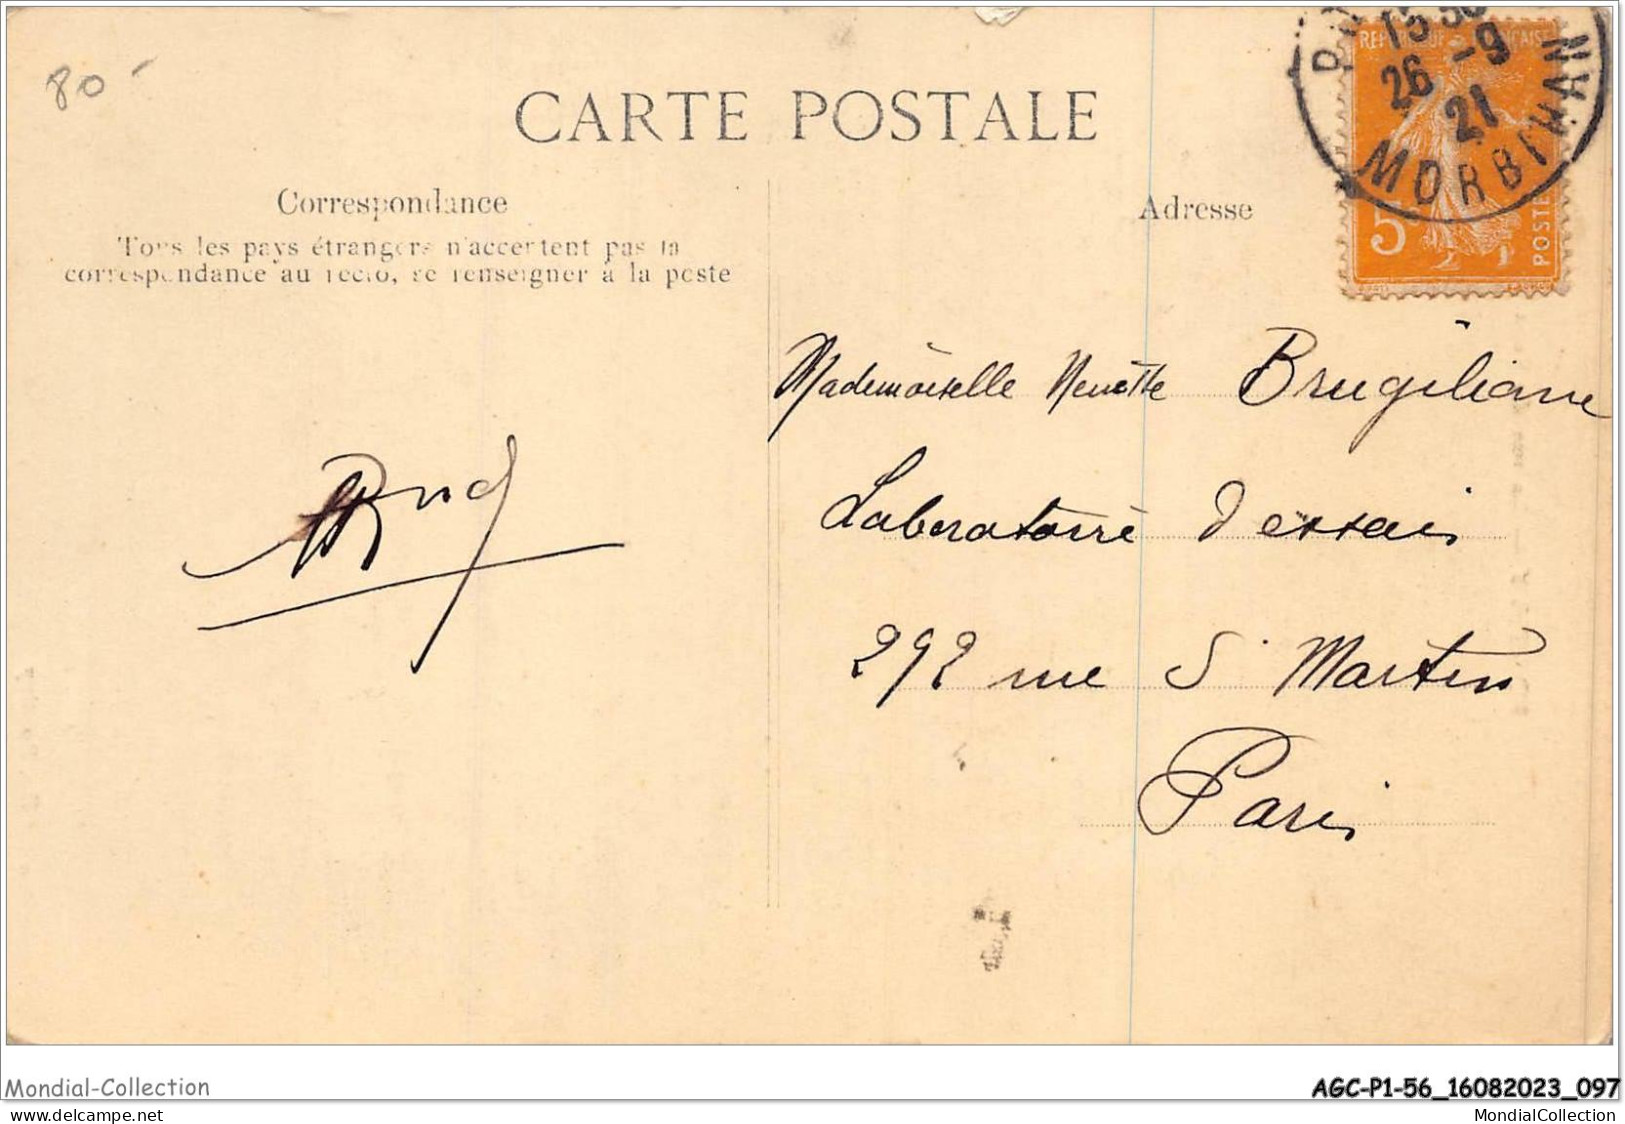 80-
CARTE POSTALE
Correspondance
Tous les pays étrangers n'acceptent pas la
correspondance au recto, se renseigner à la poste
Adresse
RÉPUBLIQUE FRANÇAISE
5c
POSTES
15
26 -9
21
MORBIHAN
Mademoiselle Brugiliane
Laboratoire d'essais
292 rue St Martin
Paris
Mondial-Collection
AGC-P1-56_16082023_097
www.delcampe.net
MondialCollection